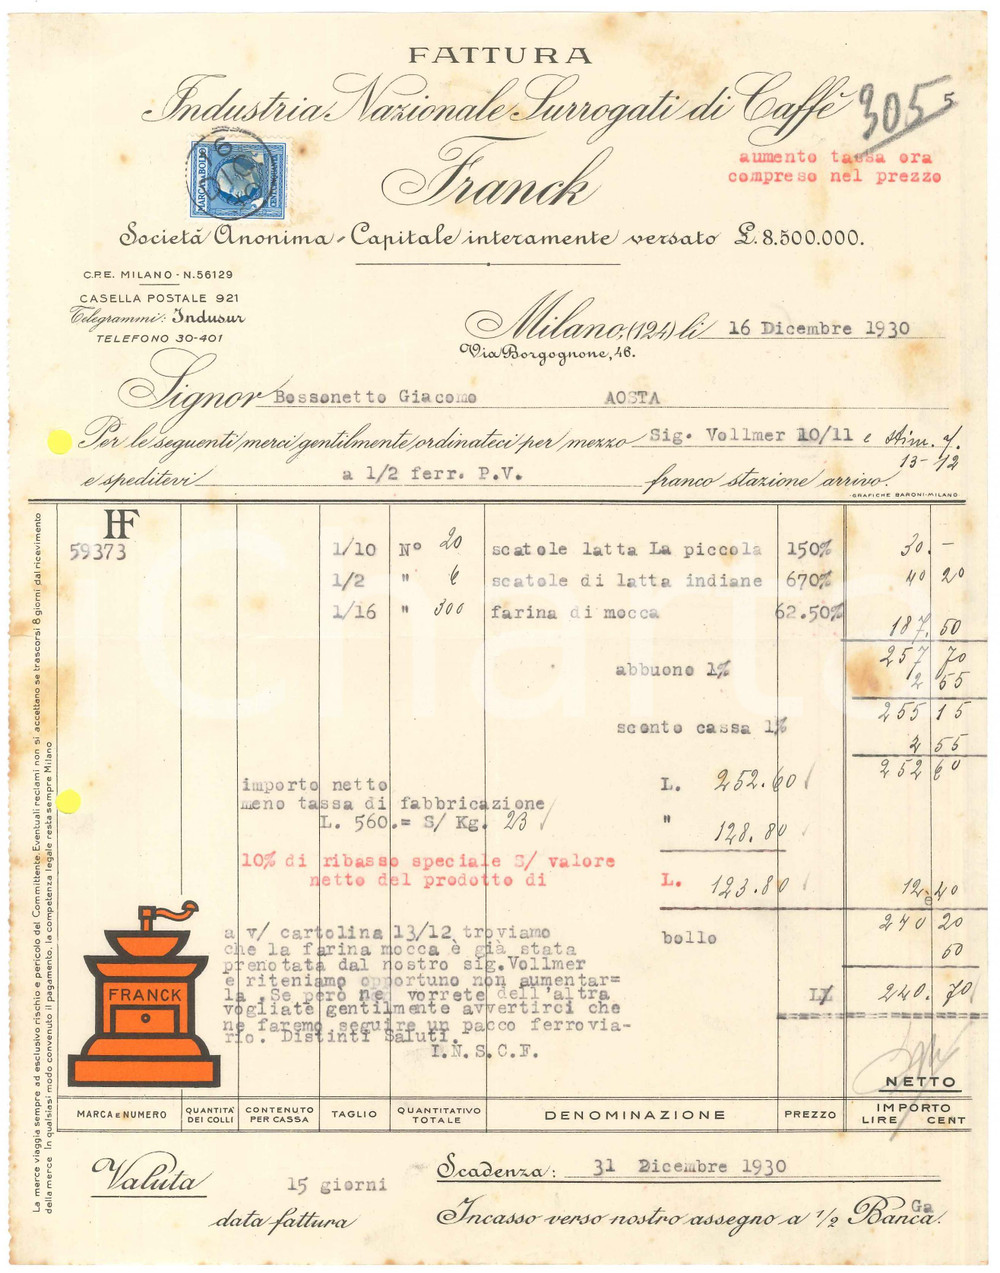 FATTURA
Industria Nazionale Surrogati di Caffè
305 5
Franck
aumento tassa ora
compreso nel prezzo
MARCA DA BOLLO
Società Anonima - Capitale interamente versato £. 8.500.000.
C.P.E. MILANO - N. 56129
CASELLA POSTALE 921
Telegrammi: Indusur
TELEFONO 30-401
Milano, (124) li 16 Dicembre 1930
Via Borgognone, 46.
Signor Bossonetto Giacomo AOSTA
Per le seguenti merci gentilmente ordinateci per mezzo Sig. Vollmer 10/11 e
13-12
e speditevi a 1/2 ferr. P.V. franco stazione arrivo.
GRAFICHE BARONI-MILANO
HF
59373
1/10 N° 20 scatole latta La piccola 150% 30.-
1/2 " 6 scatole di latta indiane 670% 40 20
1/16 " 300 farina di mocca 62.50% 187.50
257 70
abbuono 1% 2 55
255 15
sconto cassa 1% 2 55
252 60
importo netto L. 252.60
meno tassa di fabbricazione
L. 560.= S/ Kg. 23 " 128.80
10% di ribasso speciale S/ valore
netto del prodotto di L. 123.80 12 40
240 20
bollo 50
LL 240.70
a v/ cartolina 13/12 troviamo
che la farina mocca è già stata
prenotata dal nostro sig.Vollmer
e riteniamo opportuno non aumentar=
la .Se però ne vorrete dell'altra
vogliate gentilmente avvertirci che
ne faremo seguire un pacco ferrovia-
rio. Distinti Saluti.
I.N.S.C.F.
FRANCK
NETTO
MARCA E NUMERO
QUANTITA' DEI COLLI
CONTENUTO PER CASSA
TAGLIO
QUANTITATIVO TOTALE
DENOMINAZIONE
PREZZO
IMPORTO
LIRE CENT
Valuta 15 giorni
data fattura
Scadenza: 31 Dicembre 1930
Incasso verso nostro assegno a 1/2 Banca.
Ga
La merce viaggia sempre ad esclusivo rischio e pericolo del Committente. Eventuali reclami non si accettano se trascorsi 8 giorni dal ricevimento
della merce. In qualsiasi modo convenuto il pagamento, la competenza legale resta sempre Milano